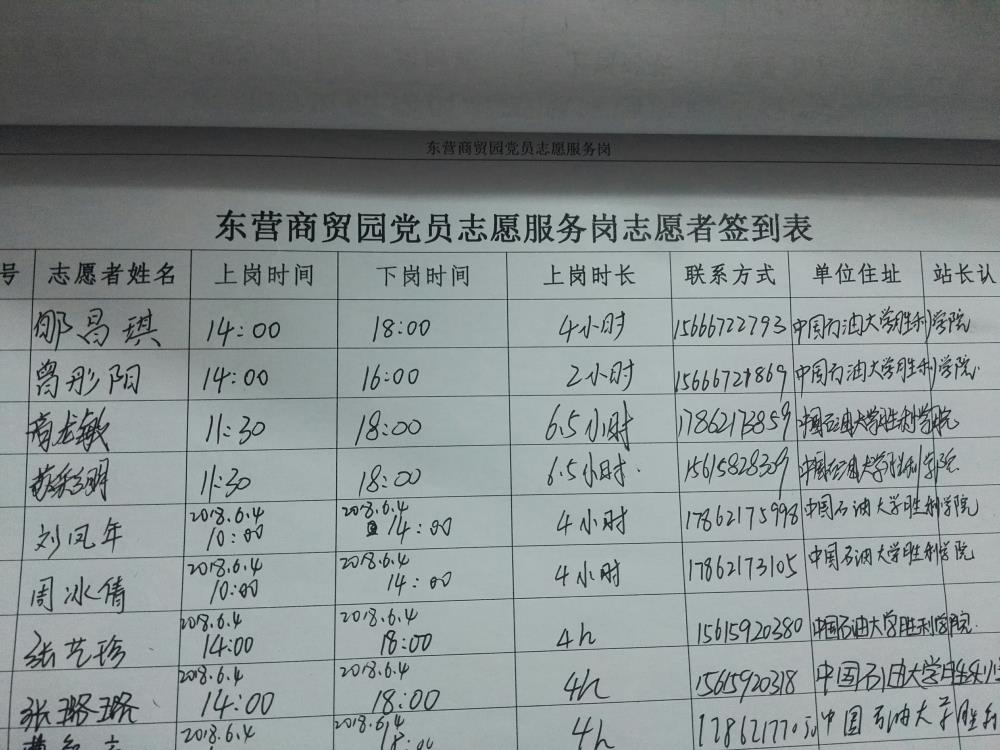 东营商贸园党员志愿服务岗
东营商贸园党员志愿服务岗志愿者签到表
号 志愿者姓名 上岗时间 下岗时间 上岗时长 联系方式 单位住址 站长认
邹昌琪 14:00 18:00 4小时 15666722793 中国石油大学胜利学院
曾彤阳 14:00 16:00 2小时 15666721869 中国石油大学胜利学院.
商龙敏 11:30 18:00 6.5小时 17862173859 中国石油大学胜利学院
11:30 18:00 6.5小时. 15615828309 中国石油大学胜利学院.
2018.6.4 2018.6.4
刘凤年 10:00 14:00 4小时 17862175998 中国石油大学胜利学院
2018.6.4 2018.6.4
周冰倩 10:00 14:00 4小时 17862173105 中国石油大学胜利学院
2018.6.4 2018.6.4
张艺珍 14:00 18:00 4h 15615920380 中国石油大学胜利学院.
2018.6.4 2018.6.4
张璐璐 14:00 18:00 4h 15615920318 中国石油大学胜利
2018.6.4 2018.6.4
18:00 4h 中国石油大学胜利